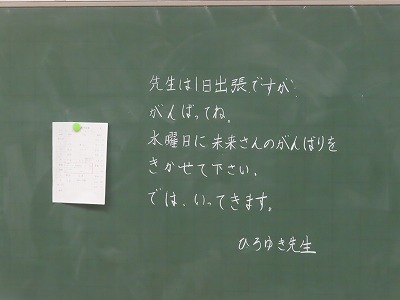 先生は1日出張ですが、
がんばってね。
水曜日に未来さんのがんばりを
きかせて下さい。
では、いってきます。
ひろゆき先生